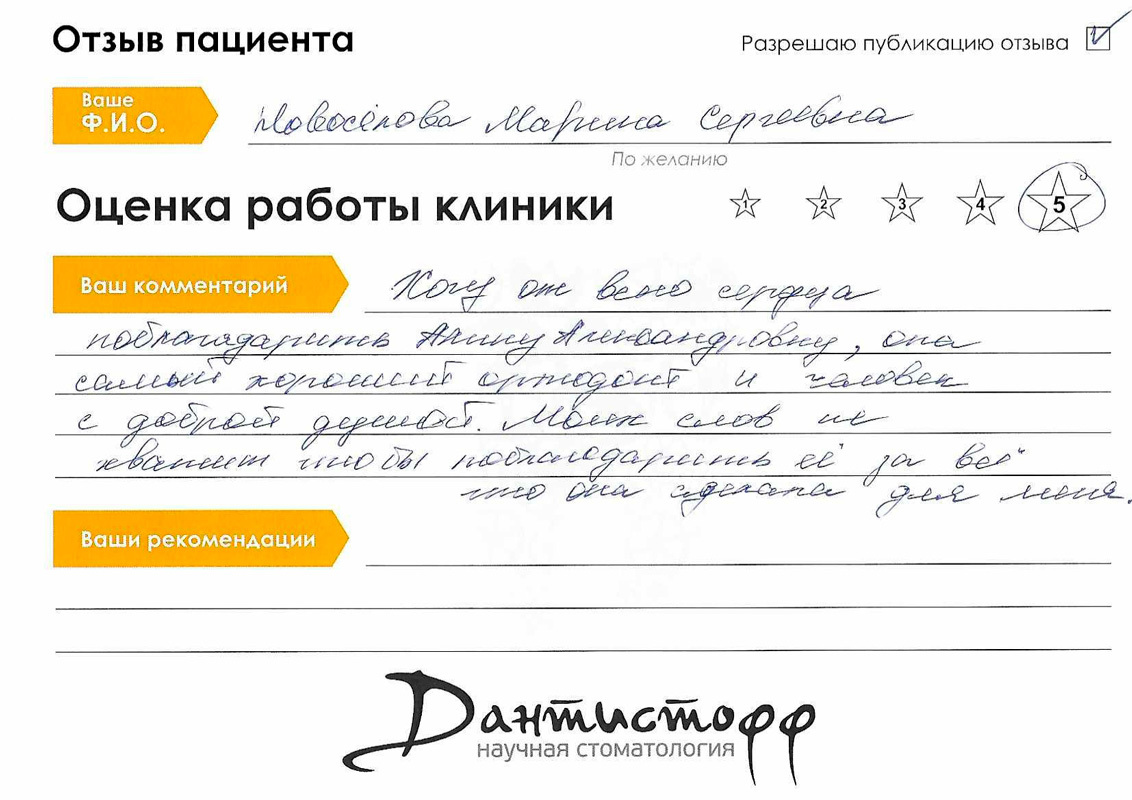 Отзыв пациента
Разрешаю публикацию отзыва
Ваше
Ф.И.О.
Новосёлова Марина Сергеевна
По желанию
Оценка работы клиники
1 2 3 4 5
Ваш комментарий
Хочу от всего сердца
поблагодарить Алину Александровну, она
самый хороший ортодонт и человек
с доброй душой. Моих слов не
хватит что бы поблагодарить её за всё
что она сделала для меня.
Ваши рекомендации
Дантистофф
научная стоматология